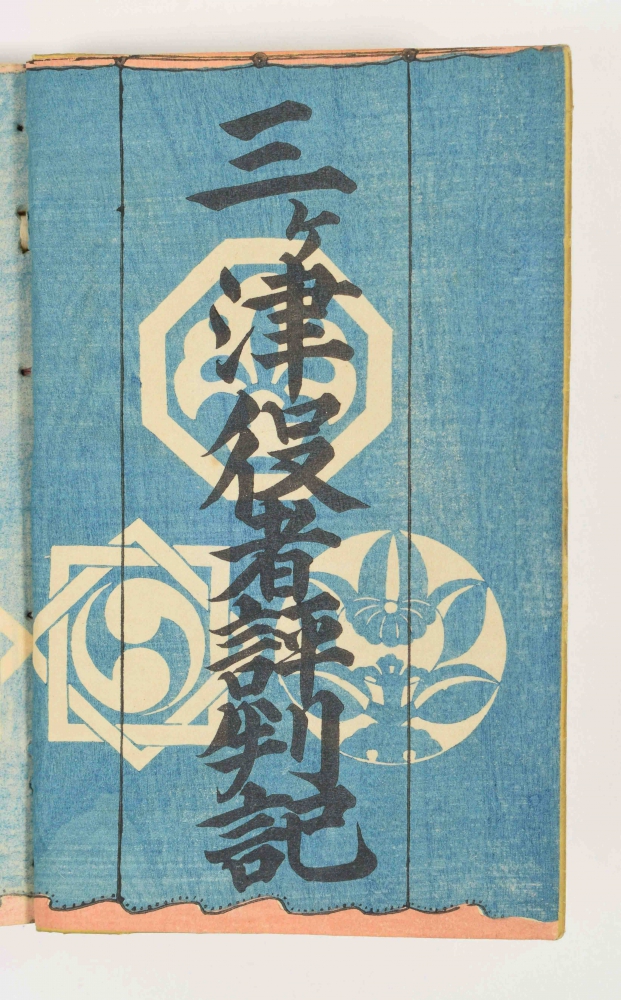 三ヶ津役者評判記